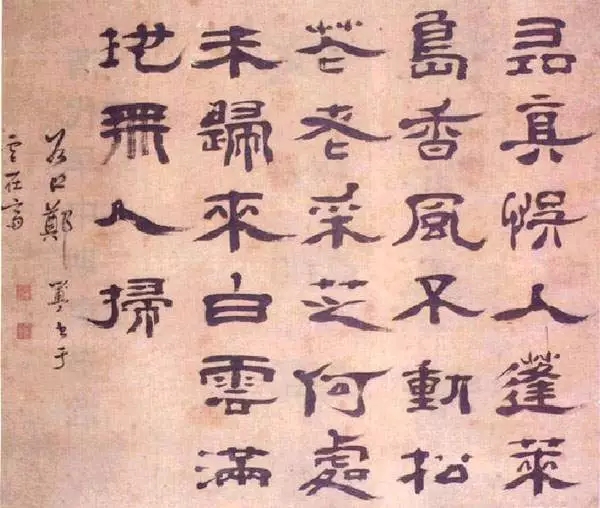 尋真悞入蓬萊
島香風不動松
花老采芝何處
未歸來白雲滿
地無人掃
谷口鄭簠書于
雲在